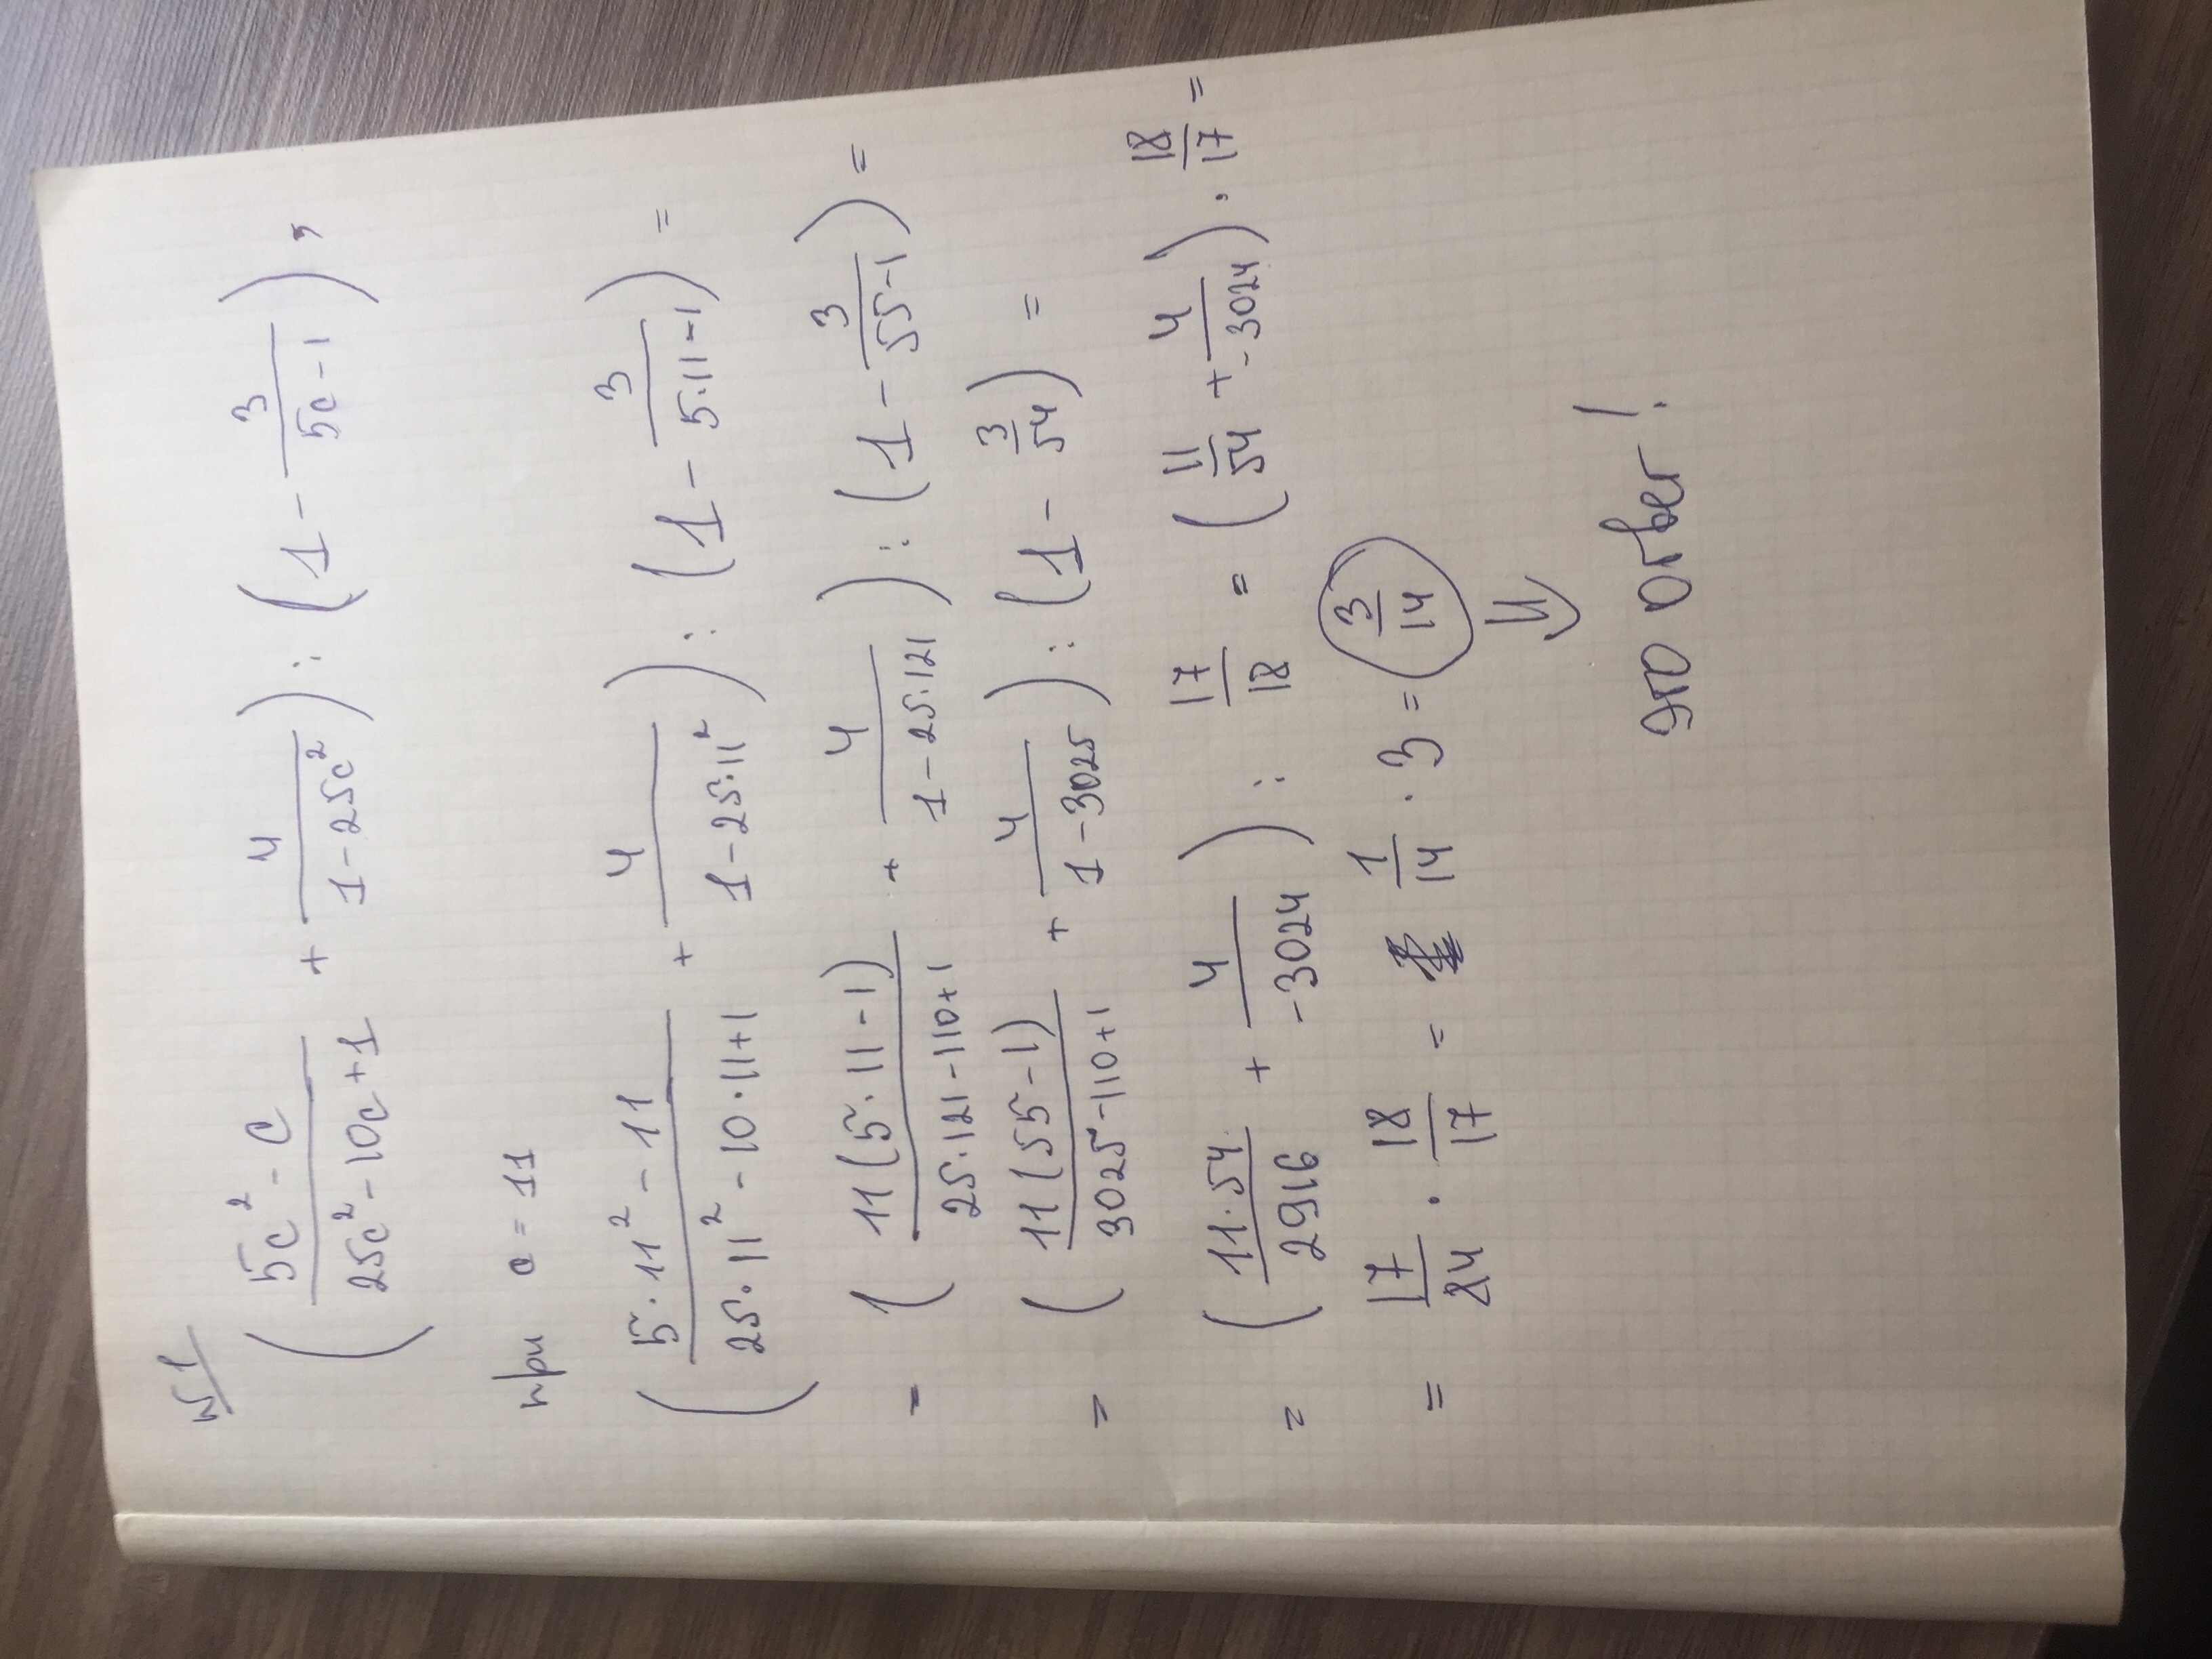 №1
(5c² - c / 25c² - 10c + 1 + 4 / 1 - 25c²) : (1 - 3 / 5c - 1),
при c = 11
(5·11² - 11 / 25·11² - 10·11+1 + 4 / 1-25·11²) : (1 - 3 / 5·11-1) =
= (11(5·11-1) / 25·121-110+1 + 4 / 1-25·121) : (1 - 3 / 55-1) =
= (11(55-1) / 3025-110+1 + 4 / 1-3025) : (1 - 3/54) =
= (11·54 / 2916 + 4 / -3024) : 17/18 = (11/54 + 4 / -3024) · 18/17 =
= 17/84 · 18/17 = 1/14 · 3 = 3/14
это ответ!